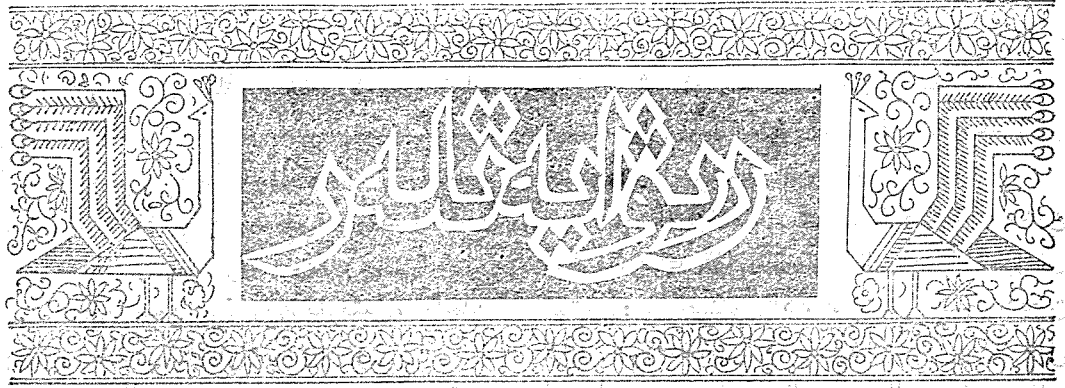 رىۋايەتلەر